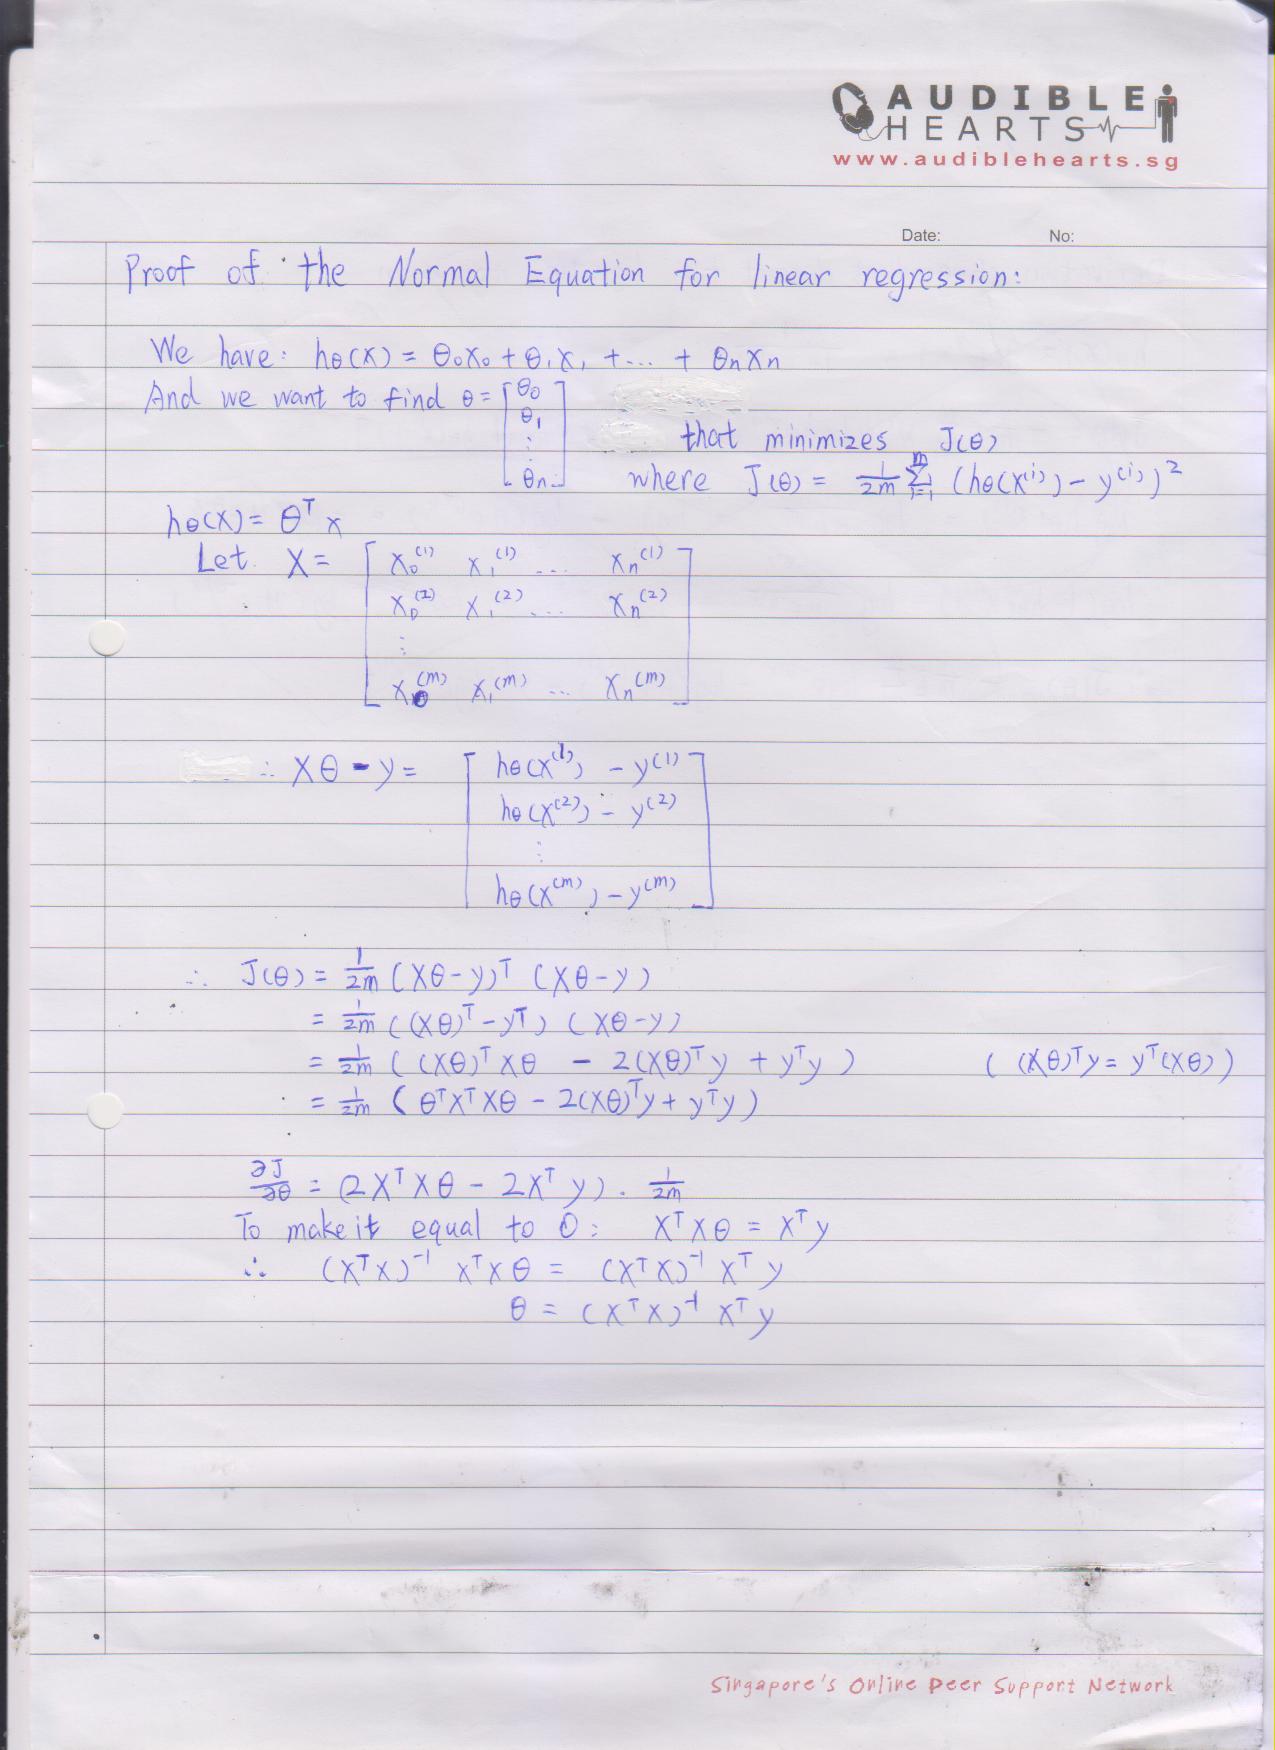 AUDIBLE
HEARTS
www.audiblehearts.sg
Date: No:
Proof of the Normal Equation for linear regression:
We have: hθ(x) = θ₀x₀ + θ₁x₁ + ... + θₙxₙ
And we want to find θ = [θ₀
θ₁
⋮
θₙ]
that minimizes J(θ)
where J(θ) = 1/2m Σᵢ₌₁ᵐ (hθ(x⁽ⁱ⁾) - y⁽ⁱ⁾)²
hθ(x) = θᵀx
Let X = [x₀⁽¹⁾ x₁⁽¹⁾ ... xₙ⁽¹⁾
x₀⁽²⁾ x₁⁽²⁾ ... xₙ⁽²⁾
⋮
x₀⁽ᵐ⁾ x₁⁽ᵐ⁾ ... xₙ⁽ᵐ⁾]
∴ Xθ - y = [hθ(x⁽¹⁾) - y⁽¹⁾
hθ(x⁽²⁾) - y⁽²⁾
⋮
hθ(x⁽ᵐ⁾) - y⁽ᵐ⁾]
∴ J(θ) = 1/2m (Xθ - y)ᵀ (Xθ - y)
= 1/2m ((Xθ)ᵀ - yᵀ) (Xθ - y)
= 1/2m ((Xθ)ᵀXθ - 2(Xθ)ᵀy + yᵀy) ((Xθ)ᵀy = yᵀ(Xθ))
= 1/2m (θᵀXᵀXθ - 2(Xθ)ᵀy + yᵀy)
∂J/∂θ = (2XᵀXθ - 2Xᵀy) · 1/2m
To make it equal to 0: XᵀXθ = Xᵀy
∴ (XᵀX)⁻¹ XᵀXθ = (XᵀX)⁻¹ Xᵀy
θ = (XᵀX)⁻¹ Xᵀy
Singapore's Online Peer Support Network